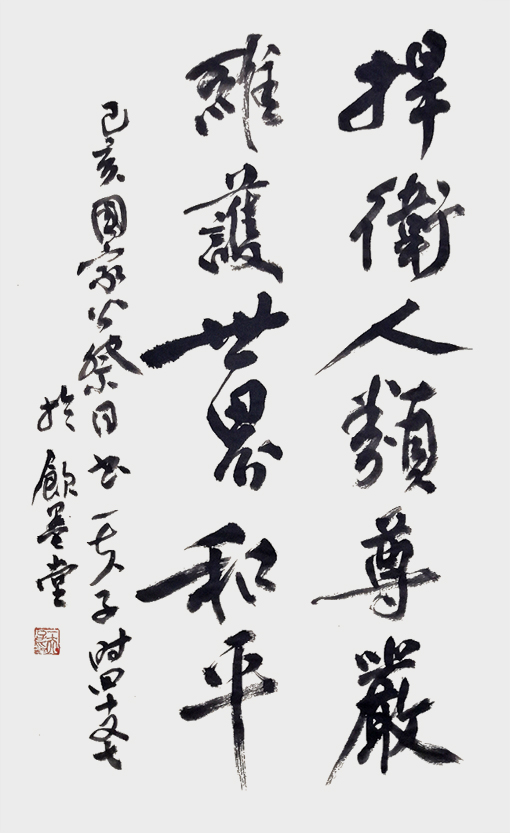 捍衛人類尊嚴
維護世界和平
己亥國家公祭日书一子时四十又七
於飲墨堂